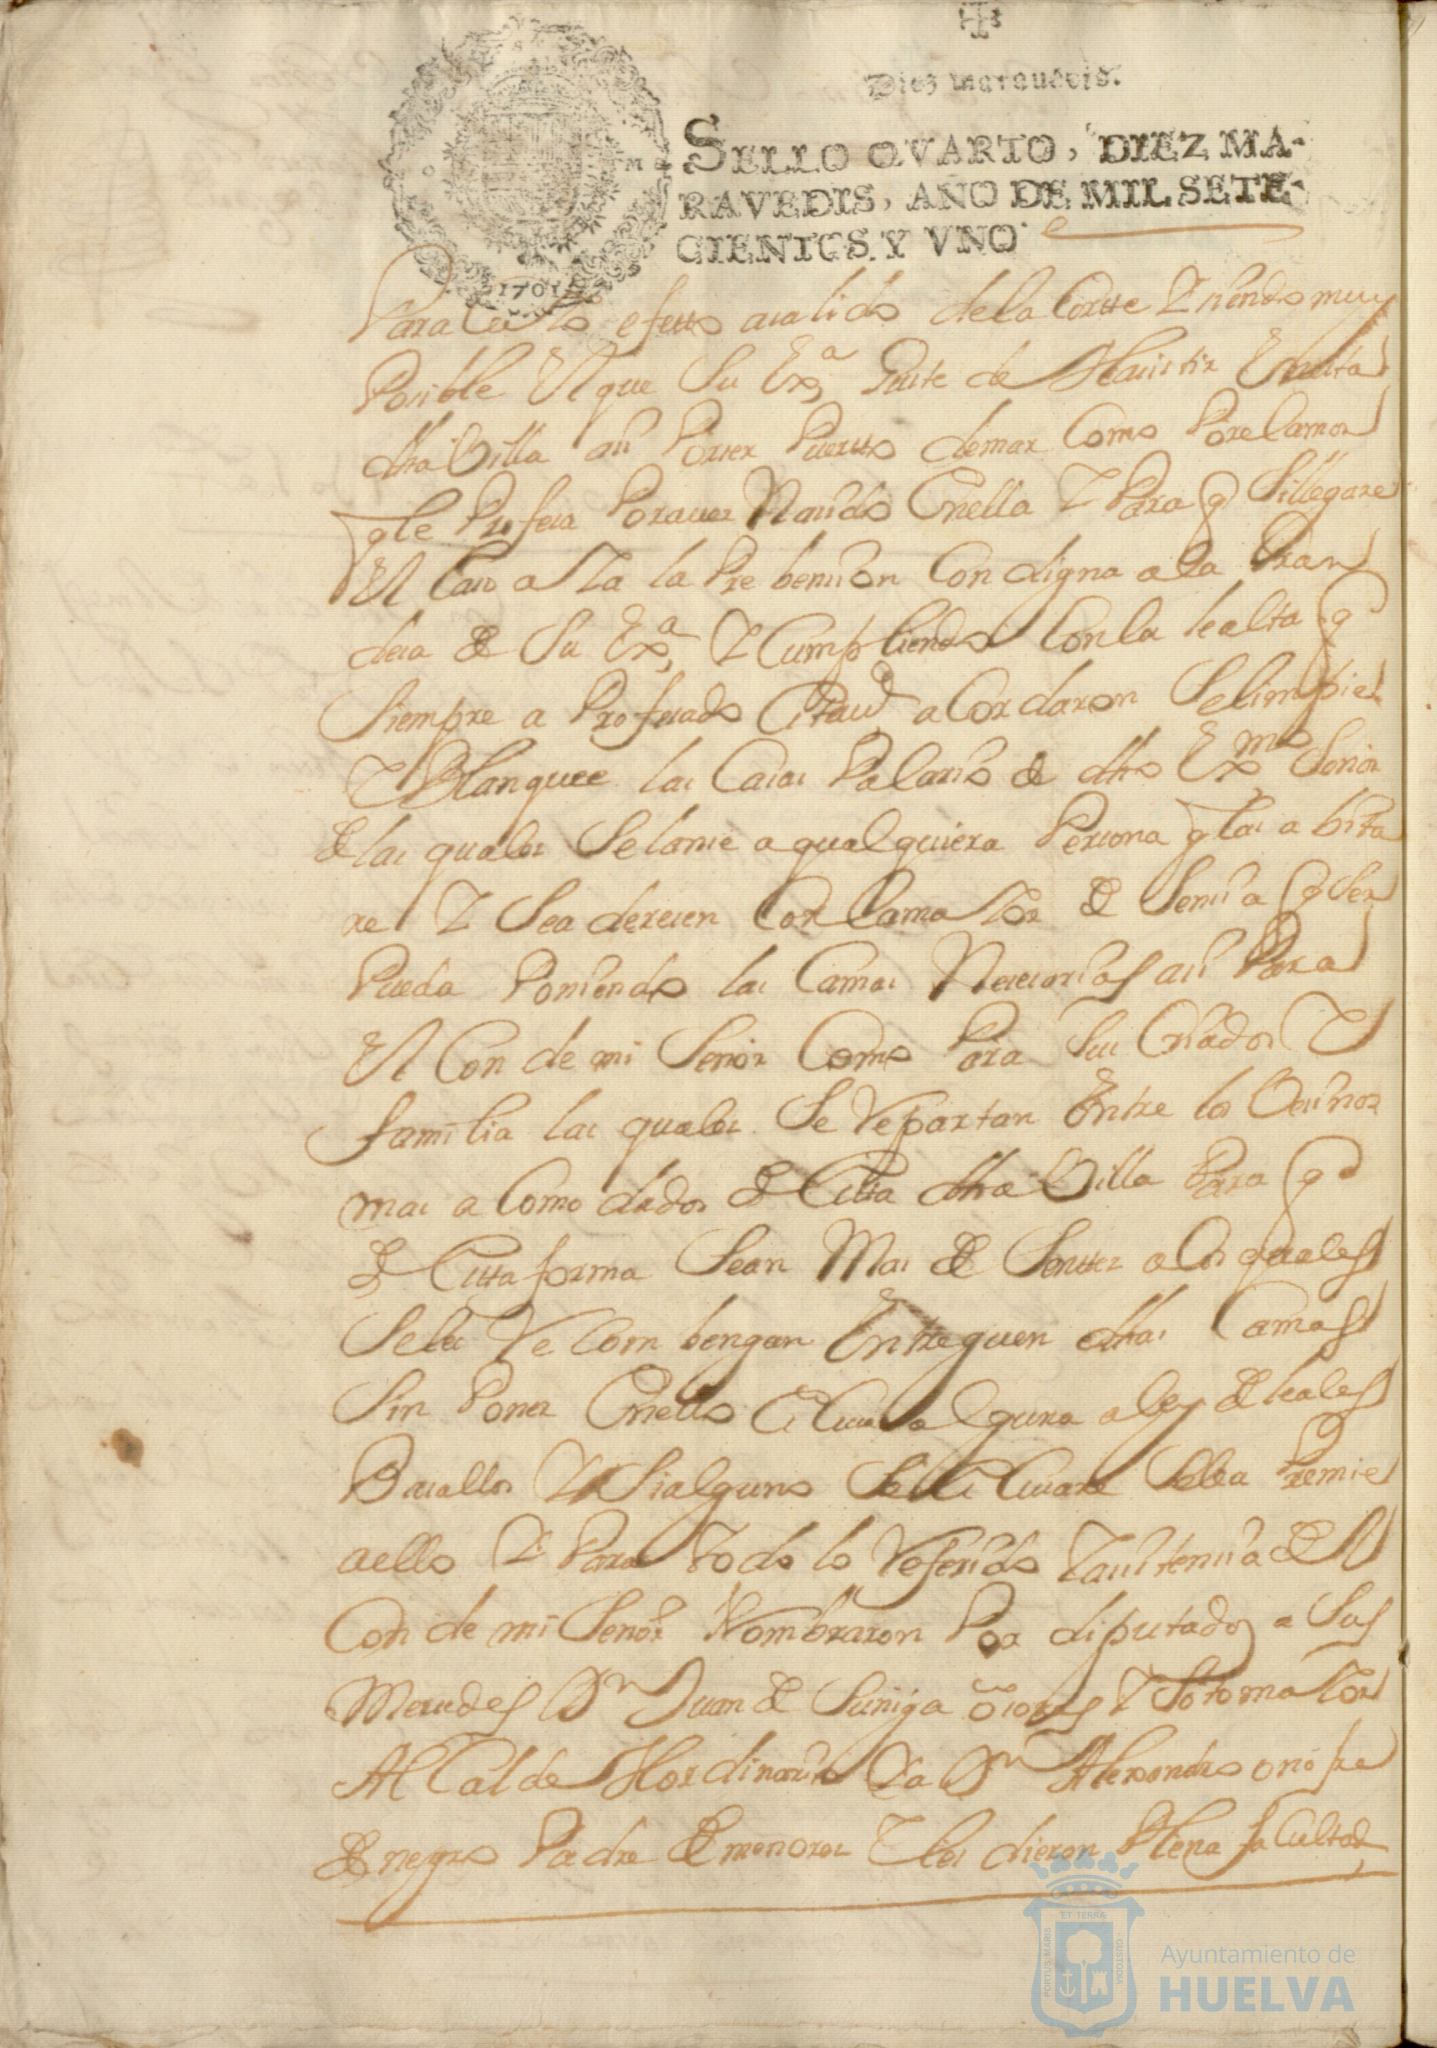 Diez marauedis.
SELLO QVARTO, DIEZ MA-
RAVEDIS, AÑO DE MIL SETE-
CIENTOS Y VNO
1701
Para Cuio efetto a salido de la Cortte Y siendo muy
Posible El que Su Exa, Guste de Haisistir En esta
dha Villa asi Por ser Puertto de mar Como Por el amor
q le Profesa Por auer Nasido En ella Y Para q Si llegare
El Caso aYa la Prebension Condigna a la Gran
desa de Su Exa, Y Cumpliendo Con la lealta q
Siempre a Profesado Esta Ud, aCordaron Se limpien
Y Blanquee las Casas Palasio de dho Exmo Señor
de las quales Se lanse a qualquiera Persona q las abita
re Y Se aderesen Con la maYor desensia q Ser
Pueda Poniendo las Camas Nesesarias asi Para
El Conde mi Señor Como Para Sus Criados Y
familia las quales Se Repartan Entre los Vesinos
mas aComodados de Esta dha Villa Para q
de Esta forma Sean Mas desenttes a los quales
Se les ReCombengan Entreguen dhas Camas
Sin Poner En ello EsCusa alguna a ley de leales
Basallos Y Si alguno Se EsCusare Se le aPremie
a ello Y Para todo lo Referido Y asistensia del
Conde mi Señor Nombraron Por diputados a Sus
Mersedes Dn Juan de Suñiga Y Sotomaior
AlCalde Hordinario Y a Dn Alexandro onofre
de negro Padre de menores Y les dieron Plena faCultad
Ayuntamiento de
HUELVA
PORTUS MARIS
ET TERRAE
CUSTODIA